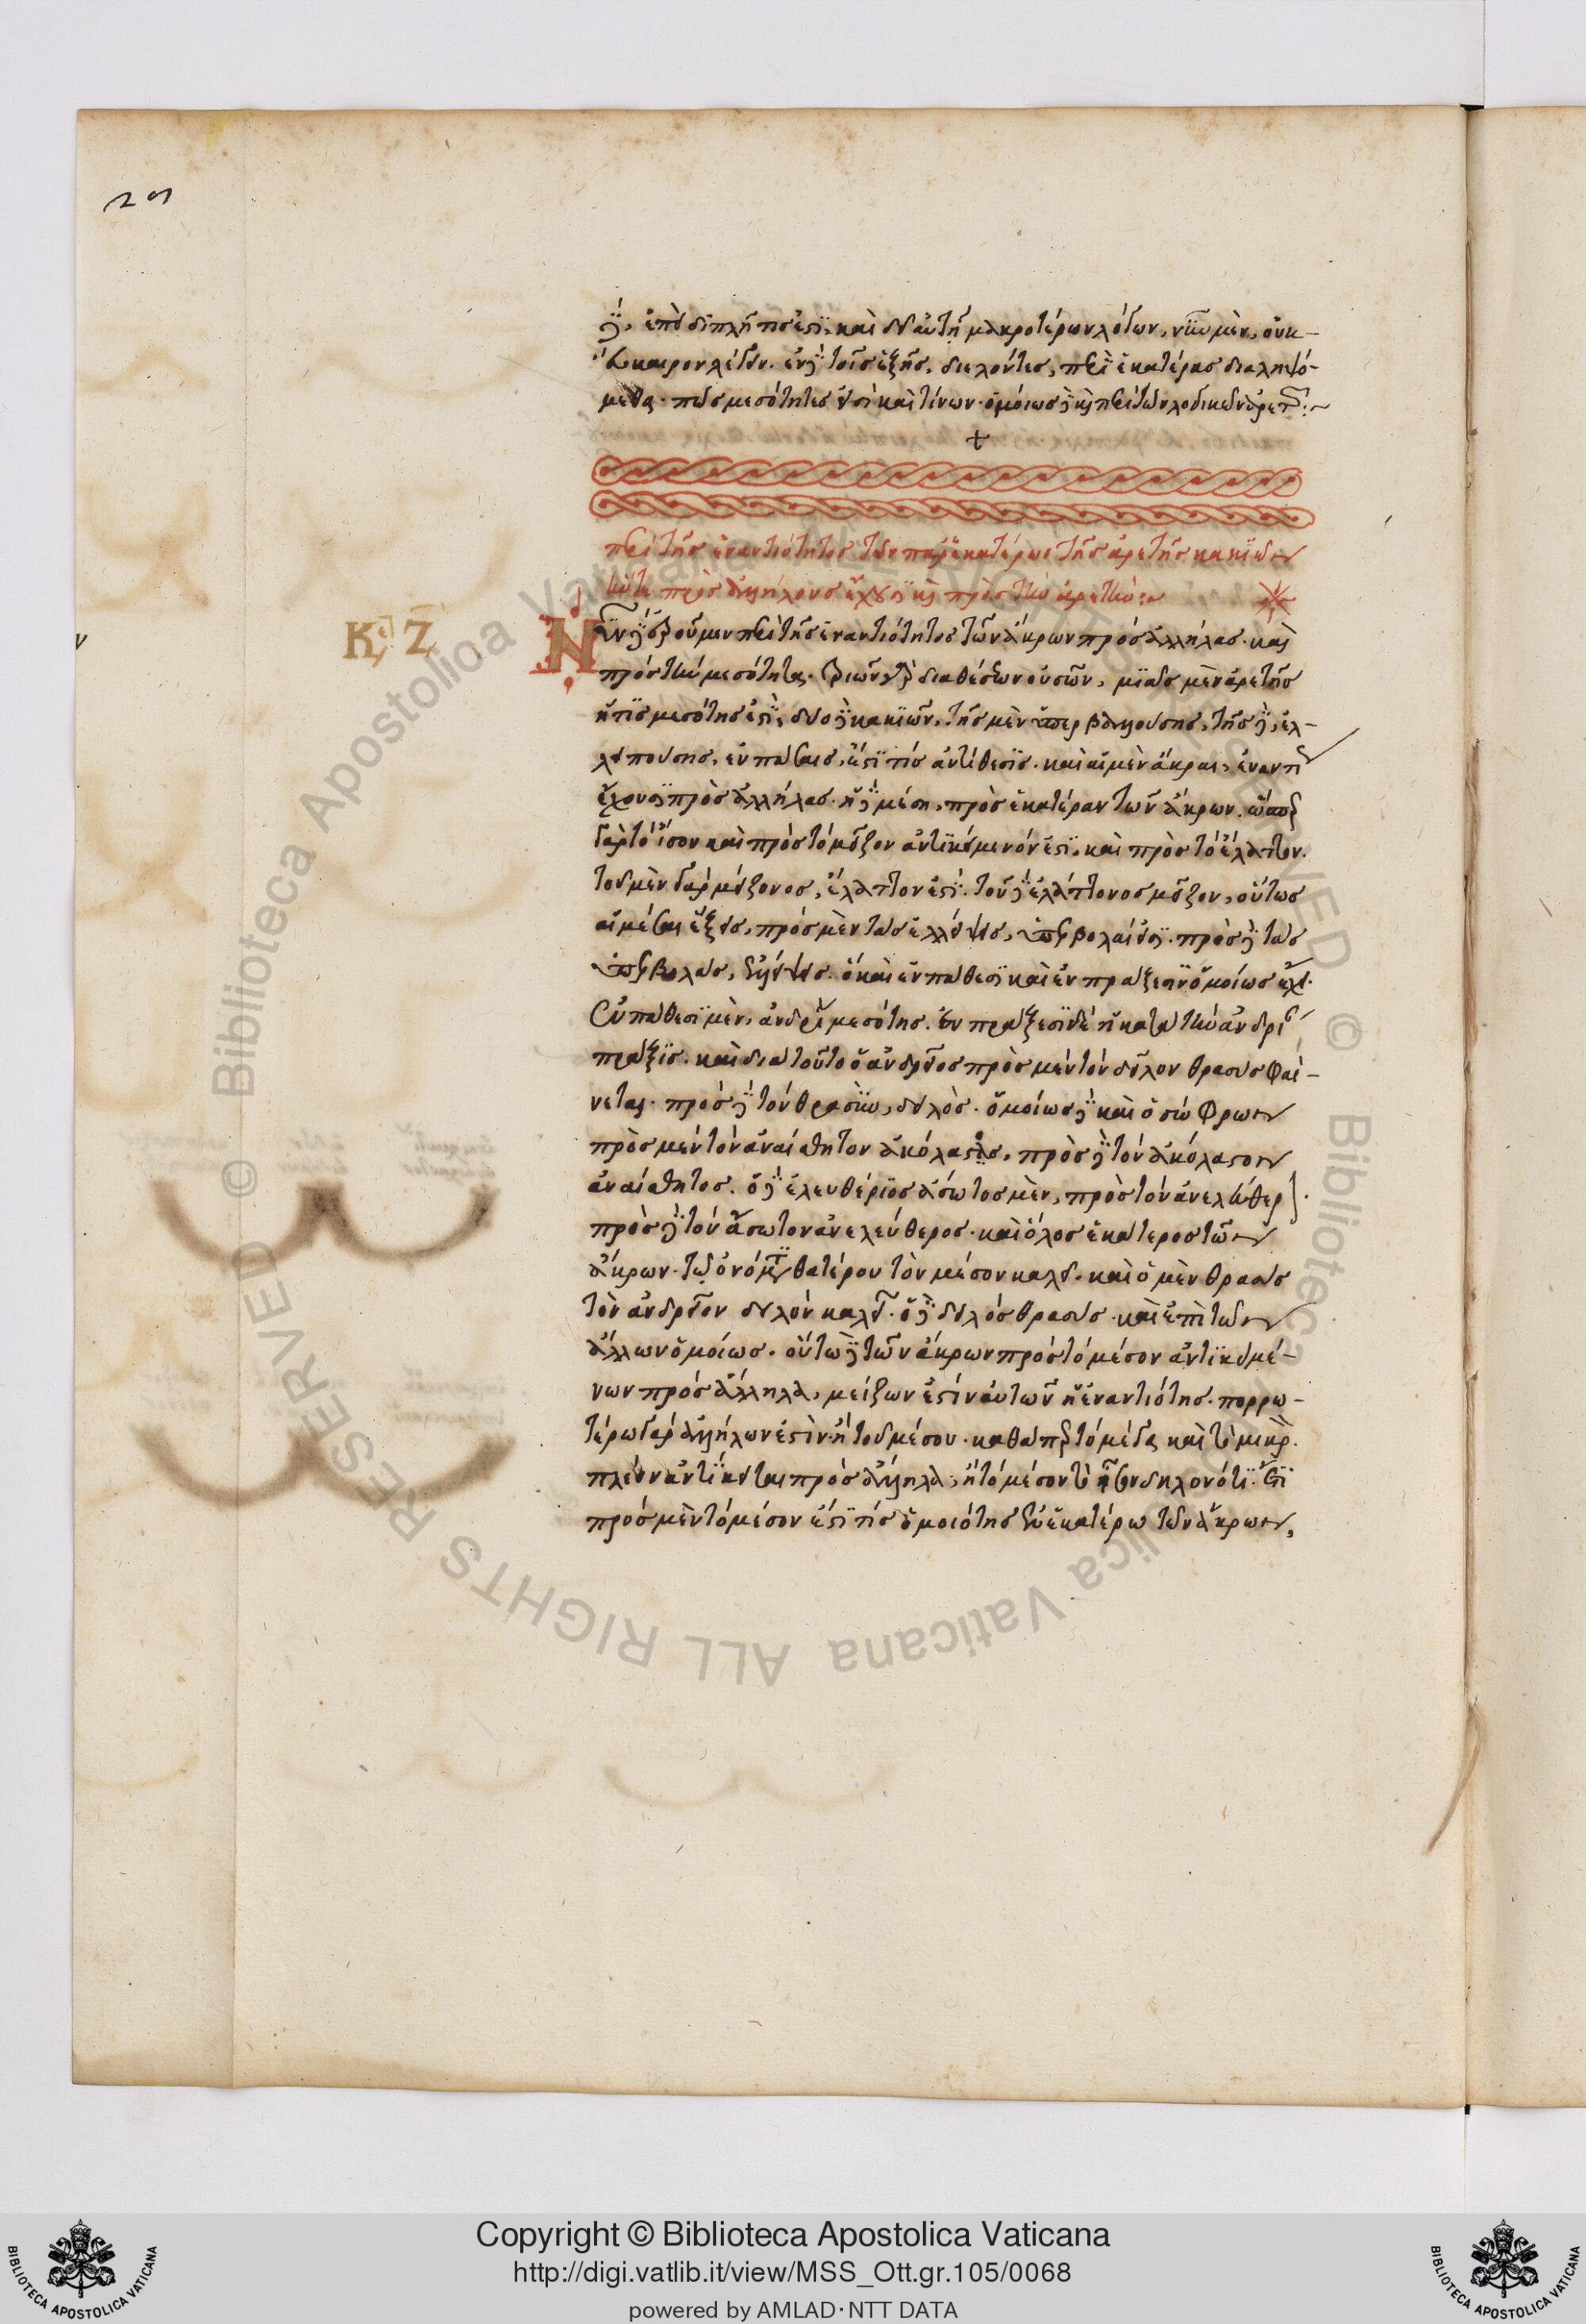 δὲ, ἐπεὶ διπλῆ τίς ἐστι, καὶ δεῖ αὐτῇ μακροτέρων λόγων, νῦν μὲν, οὐκ-
εὔκαιρον λέγειν. ἐν δὲ τοῖς ἑξῆς, διελόντες, περὶ ἑκατέρας διαληψό-
μεθα. πῶς μεσότητές εἰσι καὶ τίνων. ὁμοίως δὲ καὶ περὶ τῶν λογικῶν ἀρετῶν:~
+
περὶ τῆς ἐναντιότητος τῶν παρ' ἑκατέρω τῆς ἀρετῆς κακιῶν
ἥν τε πρὸς ἀλλήλους ἔχουσι καὶ πρὸς τὴν ἀρετήν:~
Κε Ζ
Νῦν δὲ ἐροῦμεν περὶ τῆς ἐναντιότητος τῶν ἄκρων πρὸς ἀλλήλας. καὶ
πρὸς τὴν μεσότητα. τριῶν γὰρ διαθέσεων οὐσῶν, μιᾶς μὲν ἀρετῆς
ἥτις μεσότης ἐστὶ, δύο δὲ κακιῶν, τῆς μὲν ὑπερβαλλούσης, τῆς δὲ, ἐλ-
λειπούσης, ἐν πάσαις, ἐστί τις ἀντίθεσις. καὶ αἱ μὲν ἄκραι, ἐναντί
ἔχουσι πρὸς ἀλλήλας. ἡ δὲ μέση, πρὸς ἑκατέραν τῶν ἄκρων. ὥσπερ
γὰρ τὸ ἴσον καὶ πρὸς τὸ μεῖζον ἀντικείμενόν ἐστι, καὶ πρὸς τὸ ἔλαττον.
τοῦ μὲν γὰρ μείζονος, ἔλαττον ἐστί. τοῦ δὲ ἐλάττονος μεῖζον, οὕτως
αἱ μέσαι ἕξεις, πρὸς μὲν τὰς ἐλλείψεις, ὑπερβολαί εἰσι. πρὸς δὲ τὰς
ὑπερβολὰς, ἐλλείψεις. ὃ καὶ ἐν πάθεσι καὶ ἐν πράξεσιν ὁμοίως ἔχει.
ἐν πάθεσι μὲν, ἀνδρία μεσότης. ἐν πράξεσι δὲ ἡ κατὰ τὴν ἀνδρί
πρᾶξις. καὶ διὰ τοῦτο ὁ ἀνδρεῖος πρὸς μὲν τὸν δειλὸν θρασὺς φαί-
νεται. πρὸς δὲ τὸν θρασὺν, δειλός. ὁμοίως δὲ καὶ ὁ σώφρων
πρὸς μὲν τὸν ἀναίσθητον ἀκόλαστος, πρὸς δὲ τὸν ἀκόλαστον
ἀναίσθητος. ὁ δὲ ἐλευθέριος ἄσωτος μὲν, πρὸς τὸν ἀνελεύθερ.
πρὸς δὲ τὸν ἄσωτον ἀνελεύθερος. καὶ ὅλος ἑκάτερος τῶν
ἄκρων. τῷ ὀνόματι θατέρου τὸν μέσον καλεῖ. καὶ ὁ μὲν θρασὺς
τὸν ἀνδρεῖον δειλὸν καλεῖ. ὁ δὲ δειλὸς θρασύς. καὶ ἐπὶ τῶν
ἄλλων ὁμοίως. οὕτω δὲ τῶν ἄκρων πρὸς τὸ μέσον ἀντικειμέ-
νων πρὸς ἄλληλα, μείζων ἐστὶν αὐτῶν ἡ ἐναντιότης. πορρω-
τέρω γὰρ ἀλλήλων ἐστὶν ἢ τοῦ μέσου. καθάπερ τὸ μέγα καὶ τὸ μικρ.
πλεῖον ἀντίκειται πρὸς ἄλληλα, ἢ τὸ μέσον τὸ ἴσον δηλονότι. ἔτι
πρὸς μὲν τὸ μέσον ἐστί τις ὁμοιότης ἐν ἑκατέρω τῶν ἄκρων,
Copyright © Biblioteca Apostolica Vaticana
http://digi.vatlib.it/view/MSS_Ott.gr.105/0068
powered by AMLAD·NTT DATA
BIBLIOTECA APOSTOLICA VATICANA
BIBLIOTECA APOSTOLICA VATICANA
© Biblioteca Apostolica Vaticana ALL RIGHTS RESERVED